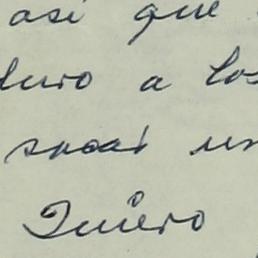 así que
duro a los
sacar un
Quiero